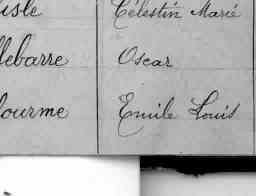 isle Célestin Marie
llebarre Oscar
lourme Emile Louis